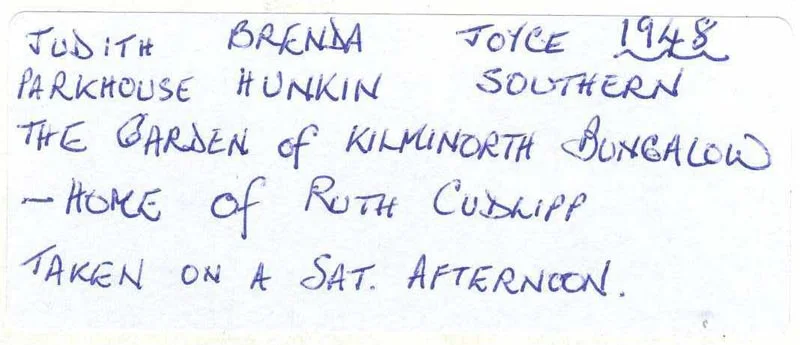 JUDITH BRENDA JOYCE 1948
PARKHOUSE HUNKIN SOUTHERN
THE GARDEN of KILMINORTH BUNGALOW
– HOME of RUTH CUDLIPP
TAKEN ON A SAT. AFTERNOON.